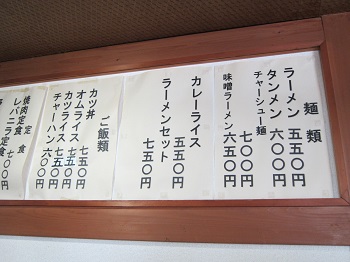 麺類
ラーメン 五五〇円
タンメン 六〇〇円
チャーシュー麺 七〇〇円
味噌ラーメン 六五〇円
カレーライス 五五〇円
ラーメンセット 七五〇円
ご飯類
カツ丼 七五〇円
オムライス 七五〇円
カツライス 七五〇円
チャーハン 六〇〇円
定食
焼肉定食
レバニラ定食 七〇〇円